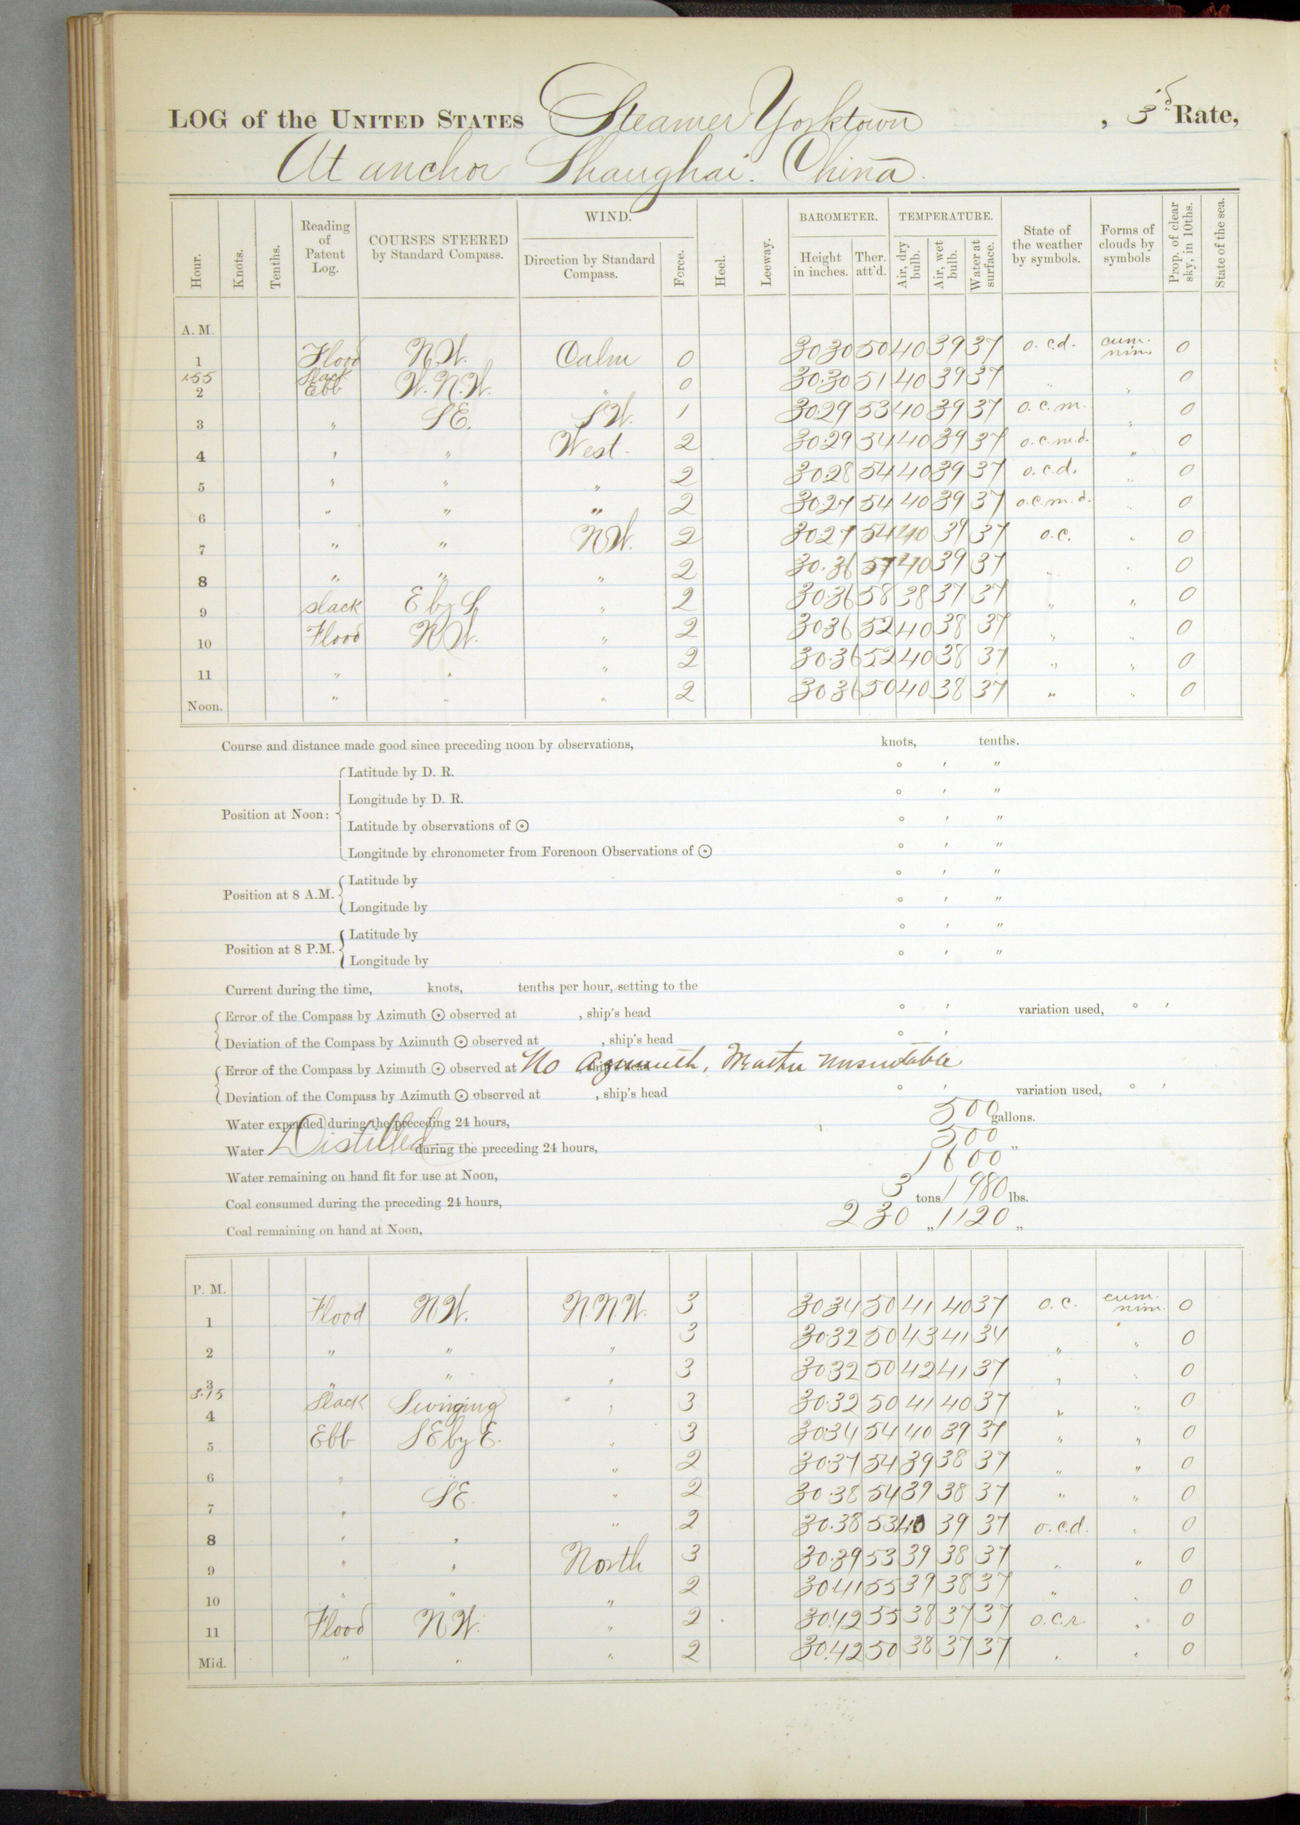 LOG of the UNITED STATES Steamer Yorktown , 3d Rate,
At anchor Shanghai. China.
Hour. Knots. Tenths. Reading of Patent Log. COURSES STEERED by Standard Compass. WIND. Direction by Standard Compass. Force. Heel. Leeway. BAROMETER. Height in inches. Ther. att'd. TEMPERATURE. Air, dry bulb. Air, wet bulb. Water at surface. State of the weather by symbols. Forms of clouds by symbols Prop. of clear sky, in 10ths. State of the sea.
A. M.
1 Flood N.W. Calm 0 30 30 50 40 39 37 o. c.d. cum. nim. 0
1.55 Slack
2 Ebb W.N.W. " 0 30.30 51 40 39 37 " " 0
3 " SE. SW. 1 30.29 53 40 39 37 o.c.m. " 0
4 " " West. 2 30.29 54 40 39 37 o.c.m.d. " 0
5 " " " 2 30.28 54 40 39 37 o.c.d. " 0
6 " " " 2 30.27 54 40 39 37 o.c.m.d. " 0
7 " " NW. 2 30.27 54 40 39 37 o.c. " 0
8 " " " 2 30.36 57 40 39 37 " " 0
9 slack E by S " 2 30.36 58 38 37 37 " " 0
10 Flood NW. " 2 30.36 52 40 38 37 " " 0
11 " " " 2 30.36 52 40 38 37 " " 0
Noon. " " " 2 30.36 50 40 38 37 " " 0
Course and distance made good since preceding noon by observations, knots, tenths.
Position at Noon: Latitude by D. R. ° ′ ″
Longitude by D. R. ° ′ ″
Latitude by observations of ⊙ ° ′ ″
Longitude by chronometer from Forenoon Observations of ⊙ ° ′ ″
Position at 8 A.M. Latitude by ° ′ ″
Longitude by ° ′ ″
Position at 8 P.M. Latitude by ° ′ ″
Longitude by ° ′ ″
Current during the time, knots, tenths per hour, setting to the
Error of the Compass by Azimuth ⊙ observed at , ship's head ° ′ variation used, ° ′
Deviation of the Compass by Azimuth ⊙ observed at , ship's head ° ′
Error of the Compass by Azimuth ⊙ observed at No Azimuth, Weather unsuitable
Deviation of the Compass by Azimuth ⊙ observed at , ship's head ° ′ variation used, ° ′
Water expended during the preceding 24 hours, 500 gallons.
Water Distilled during the preceding 24 hours, 500 "
Water remaining on hand fit for use at Noon, 1600
Coal consumed during the preceding 24 hours, 3 tons 1980 lbs.
Coal remaining on hand at Noon, 230 " 1120 "
P. M.
1 Flood NW. N.N.W. 3 30.34 50 41 40 37 o.c. cum. nim. 0
2 " " " 3 30.32 50 43 41 37 " " 0
3 " " " 3 30.32 50 42 41 37 " " 0
3.15
4 Slack Swinging " 3 30.32 50 41 40 37 " " 0
5 Ebb SE by E. " 3 30.34 54 40 39 37 " " 0
6 " " " 2 30.37 54 39 38 37 " " 0
7 " SE. " 2 30.38 54 39 38 37 " " 0
8 " " " 2 30.38 53 40 39 37 o.c.d. " 0
9 " " North 3 30.39 53 39 38 37 " " 0
10 " " " 2 30.41 55 39 38 37 " " 0
11 Flood NW. " 2 30.42 55 38 37 37 o.c.r. " 0
Mid. " " " 2 30.42 50 38 37 37 " " 0